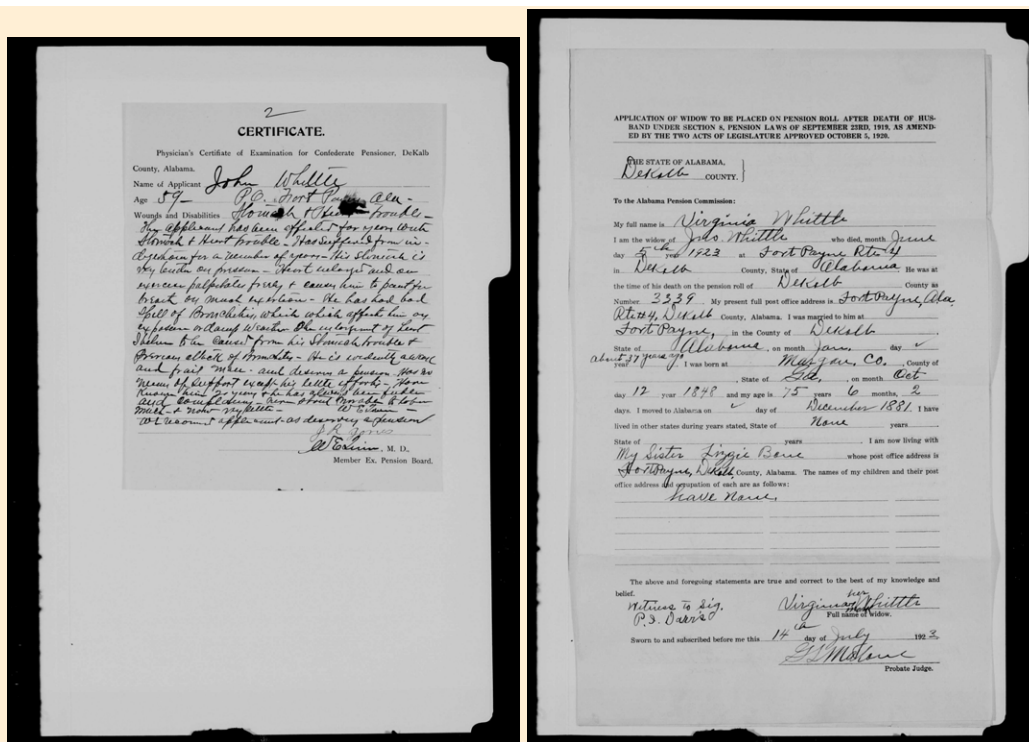 2
CERTIFICATE.
Physician's Certifiate of Examination for Confederate Pensioner, DeKalb
County, Alabama.
Name of Applicant John Whittle
Age 59 — P.O. Fort Payne Ala -
Wounds and Disabilities Stomach & Heart trouble -
The applicant has been afflicted for years with
Stomach & Heart trouble - Has suffered from in-
digestion for a number of years - His stomach is
very tender on pressure - Heart enlarged and on
exercise palpitates freely & causes him to pant for
breath on much exertion - He has had bad
spell of Bronchitis, which which affect him on
exposure or damp weather The enlargement of heart
I believe to be caused from his stomach trouble &
Previous attack of - He is evidently a weak
and frail man - and deserves a pension. Has no
means of support except his little efforts - Have
known him 20 years & he has always been feeble
and complaining -
much & now
We recommend applicant as deserving a pension
J R Jones
W E Quin, M. D.,
Member Ex. Pension Board.
APPLICATION OF WIDOW TO BE PLACED ON PENSION ROLL AFTER DEATH OF HUS-
BAND UNDER SECTION 8, PENSION LAWS OF SEPTEMBER 23RD, 1919, AS AMEND-
ED BY THE TWO ACTS OF LEGISLATURE APPROVED OCTOBER 5, 1920.
THE STATE OF ALABAMA,
DeKalb COUNTY.
To the Alabama Pension Commission:
My full name is Virginia Whittle
I am the widow of Jno. Whittle who died, month June
day 5th year 1923 at Fort Payne Rte 4
in DeKalb County, State of Alabama He was at
the time of his death on the pension roll of DeKalb County as
Number 3239 My present full post office address is Fort Payne, Ala.
Rte #4, DeKalb County, Alabama. I was married to him at
Fort Payne, in the County of DeKalb
State of Alabama, on month Jan. day
about 37 years ago
year I was born at Morgan Co. County of
, State of Ga. on month Oct
day 12 year 1848 and my age is 75 years 6 months, 2
days. I moved to Alabama on day of December 1881. I have
lived in other states during years stated, State of None years.
State of years I am now living with
My Sister Lizzie Bone whose post office address is
Fort Payne, DeKalb, County, Alabama. The names of my children and their post
office address and occupation of each are as follows:
have None.
The above and foregoing statements are true and correct to the best of my knowledge and
belief.
Witness to Sig.
P. S. Davis
her
Virginia Whittle
mark
Full name of widow.
Sworn to and subscribed before me this 14th day of July 1923
G L Malone
Probate Judge.